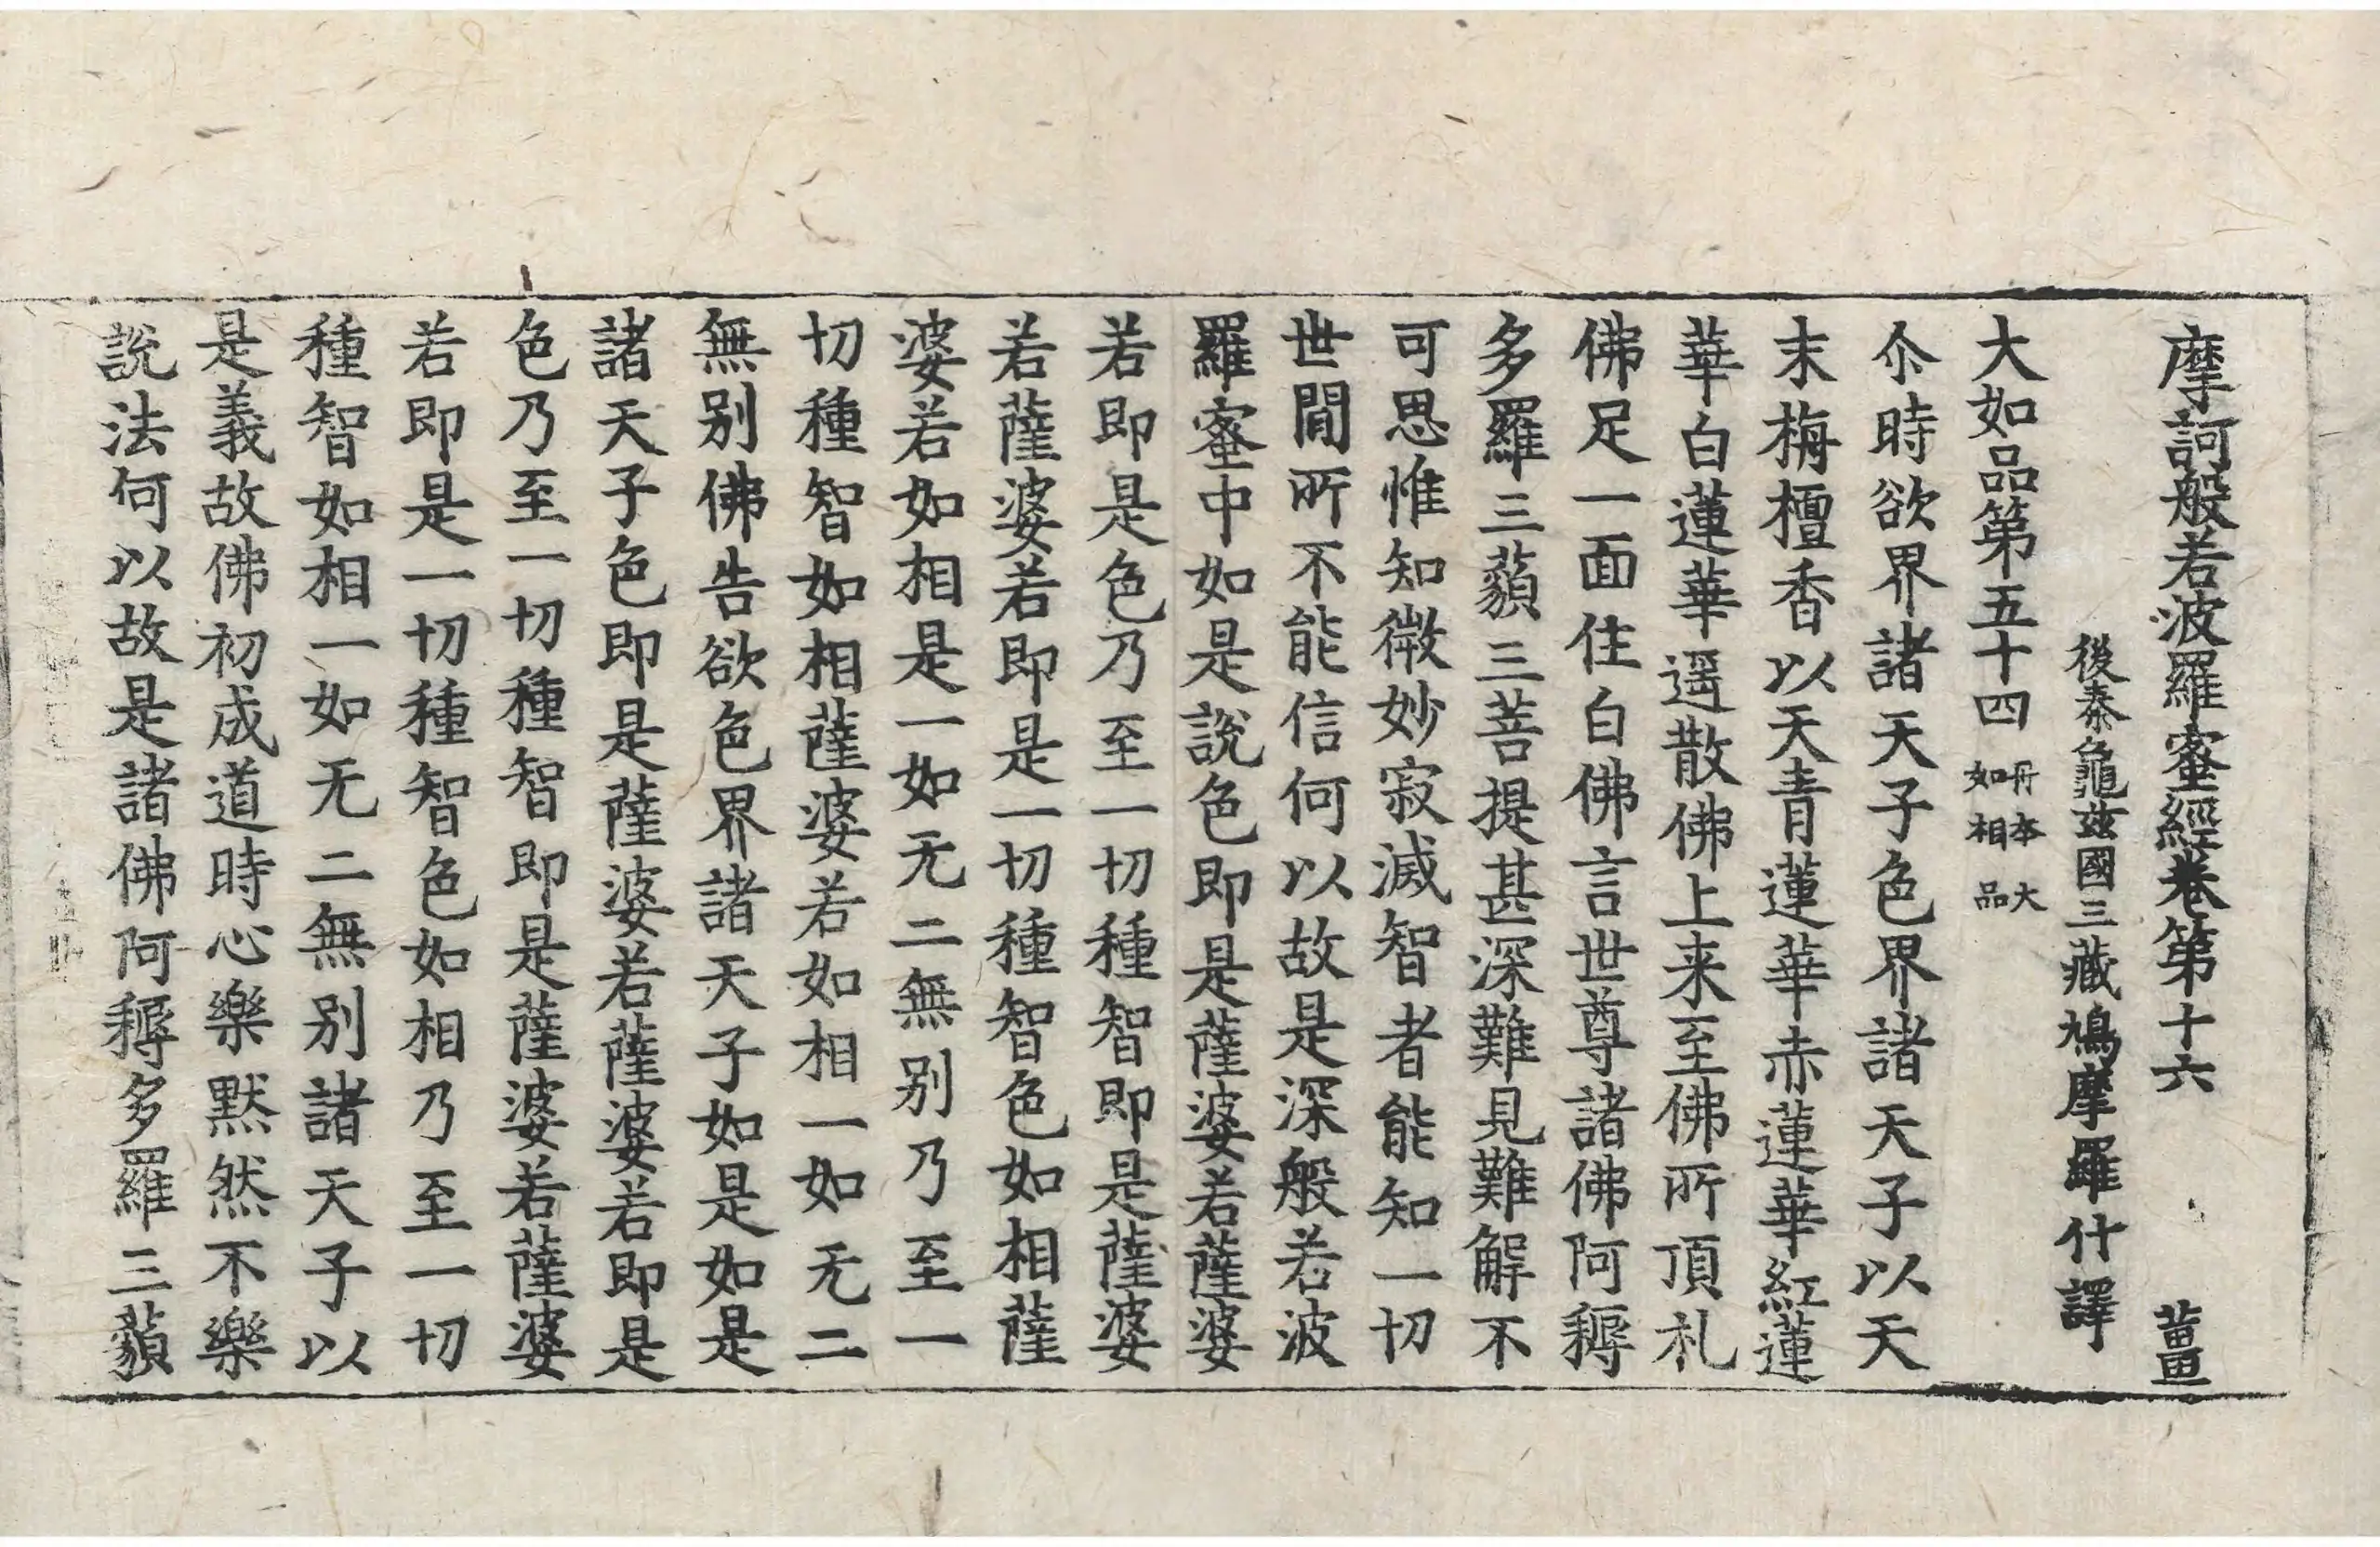 摩訶般若波羅蜜經卷第十六 薑
後秦龜茲國三藏鳩摩羅什譯
大如品第五十四 丹本大如相品
尒時欲界諸天子色界諸天子以天
末栴檀香以天青蓮華赤蓮華紅蓮
華白蓮華遥散佛上来至佛所頂礼
佛足一面住白佛言世尊諸佛阿耨
多羅三藐三菩提甚深難見難解不
可思惟知微妙寂滅智者能知一切
世間所不能信何以故是深般若波
羅蜜中如是說色即是薩婆若薩婆
若即是色乃至一切種智即是薩婆
若薩婆若即是一切種智色如相薩
婆若如相是一如无二無别乃至一
切種智如相薩婆若如相一如无二
無别佛告欲色界諸天子如是如是
諸天子色即是薩婆若薩婆若即是
色乃至一切種智即是薩婆若薩婆
若即是一切種智色如相乃至一切
種智如相一如无二無别諸天子以
是義故佛初成道時心樂默然不樂
說法何以故是諸佛阿耨多羅三藐